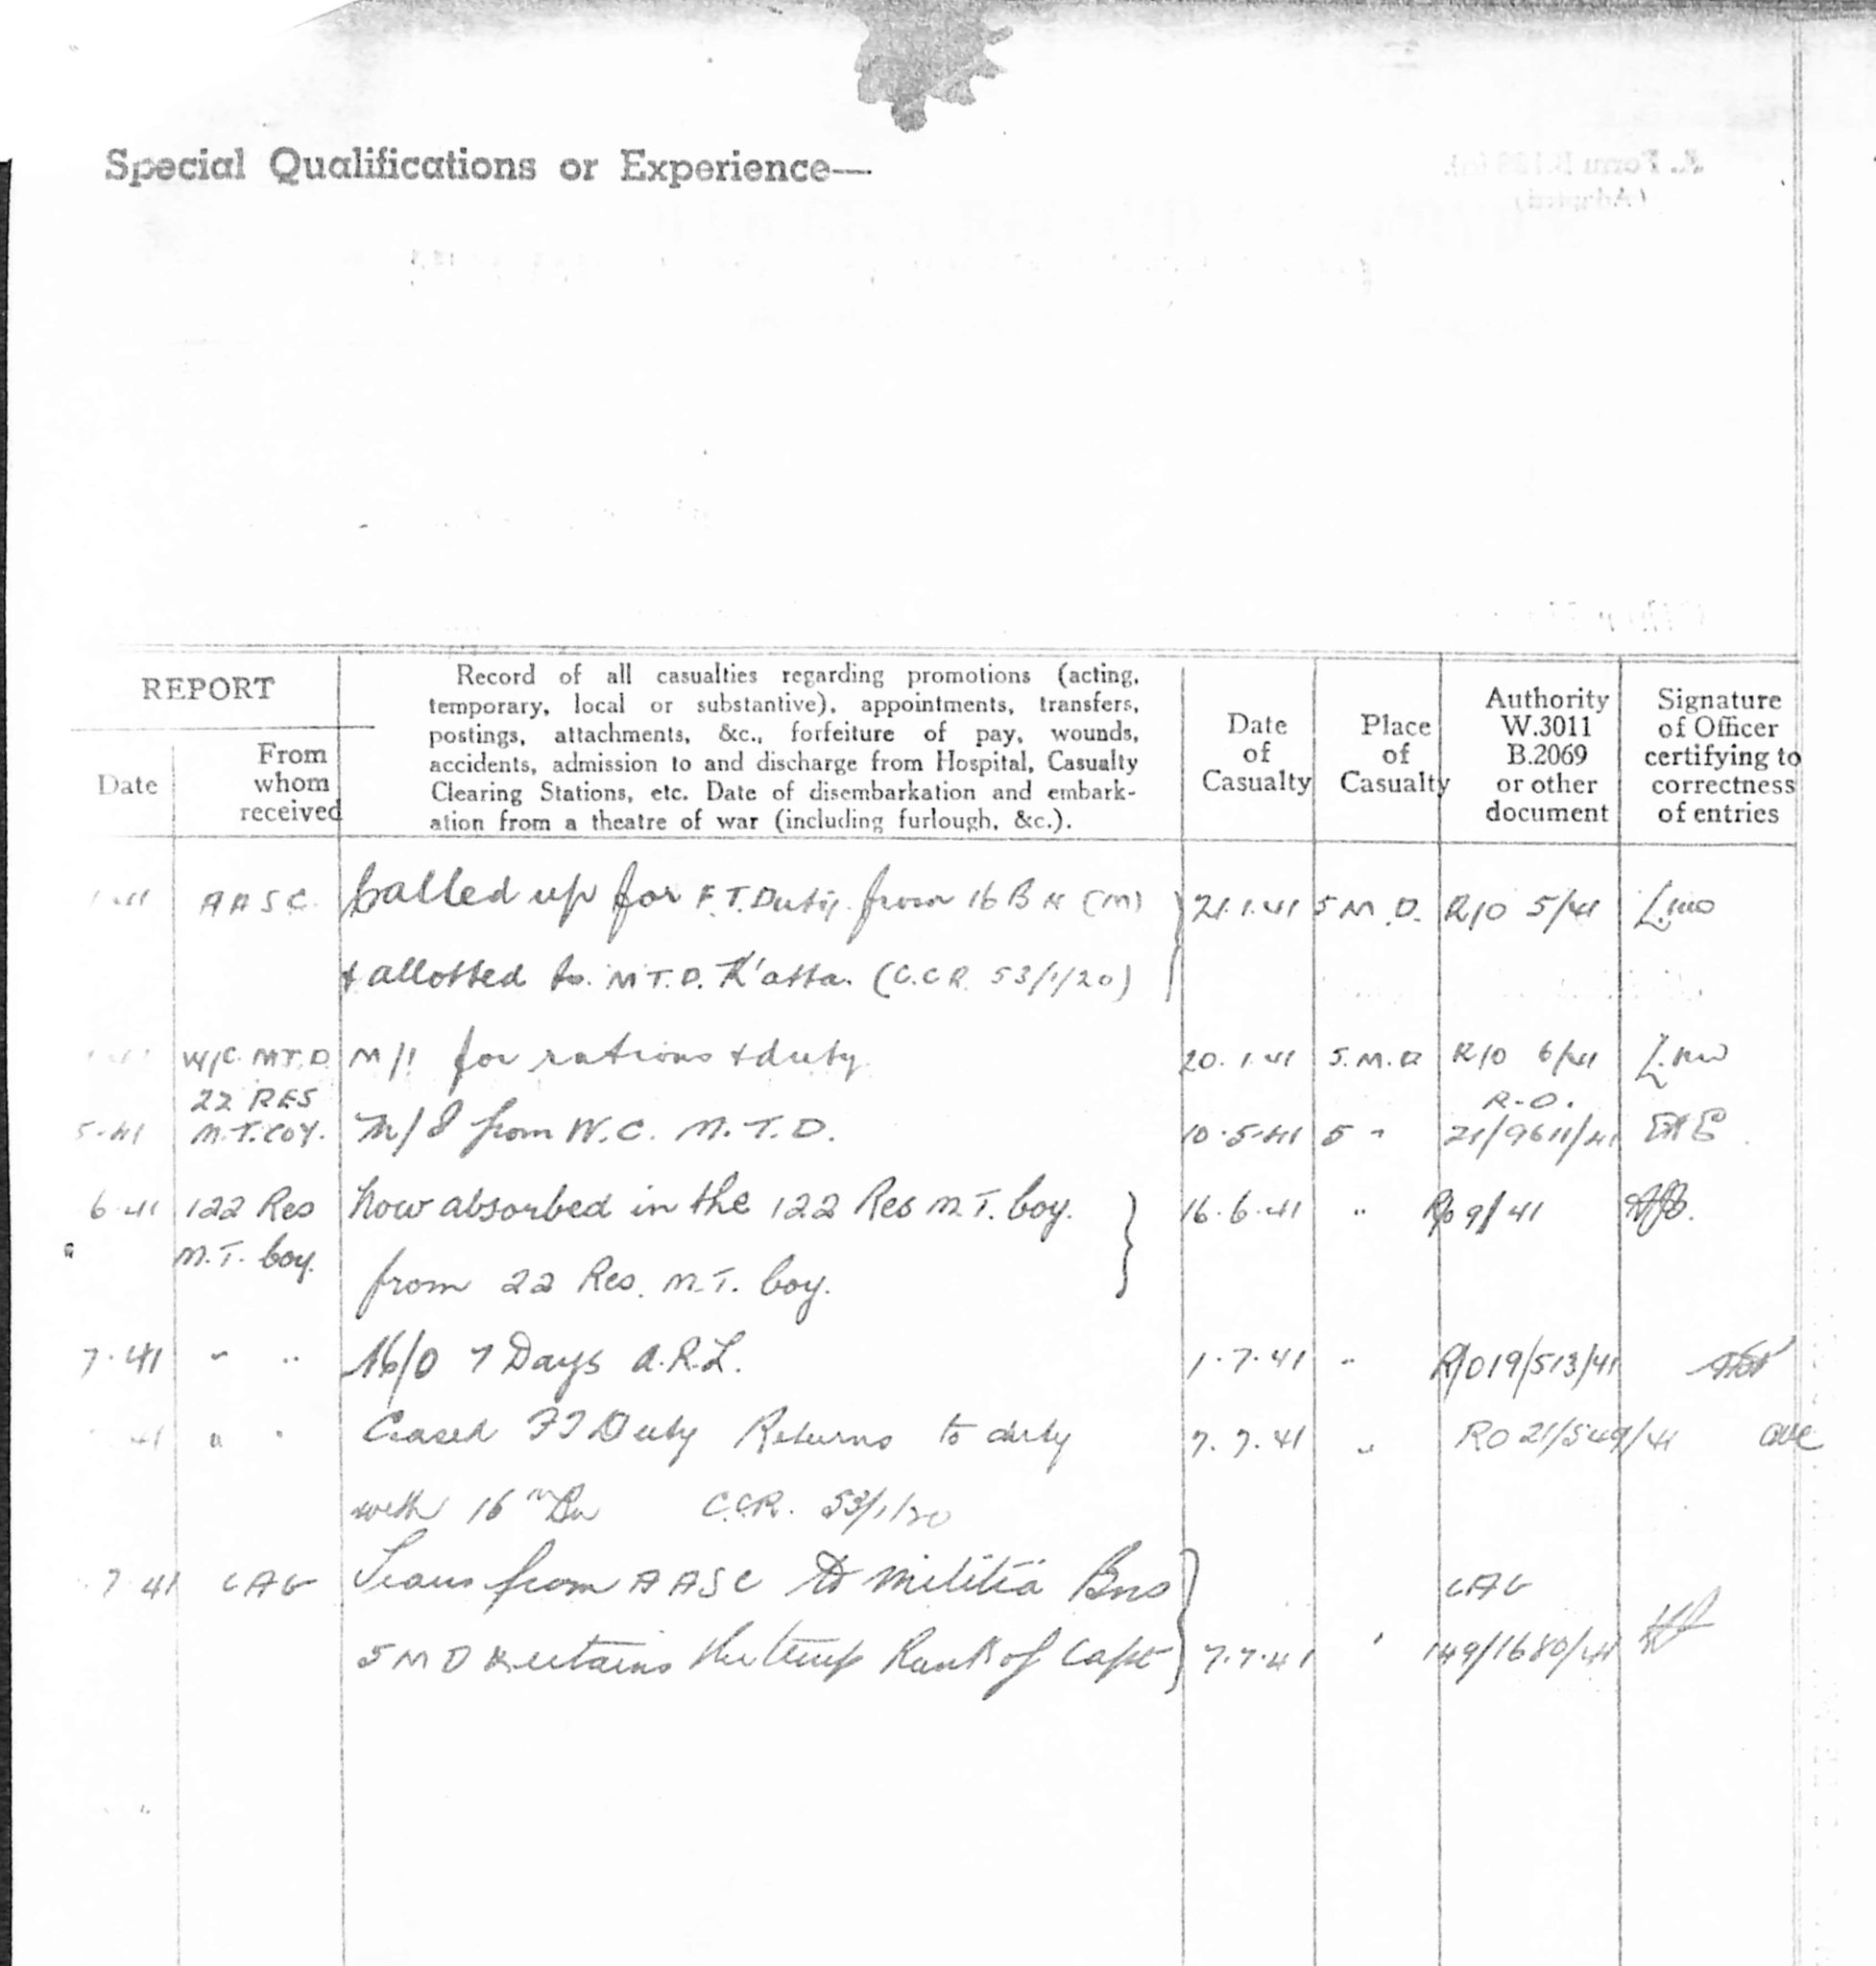 Special Qualifications or Experience—
REPORT
Date
From
whom
received
Record of all casualties regarding promotions (acting,
temporary, local or substantive), appointments, transfers,
postings, attachments, &c., forfeiture of pay, wounds,
accidents, admission to and discharge from Hospital, Casualty
Clearing Stations, etc. Date of disembarkation and embark-
ation from a theatre of war (including furlough, &c.).
Date
of
Casualty
Place
of
Casualty
Authority
W.3011
B.2069
or other
document
Signature
of Officer
certifying to
correctness
of entries
AASC. Called up for F.T. Duty from 16 Bn (M) 21.1.41 5 M.D. R/O 5/41
& allotted to M.T.D. K'atta. (C.C.R. 53/1/20)
W/C. M.T.D M/I for rations & duty. 20.1.41 5.M.D R/O 6/41
22 RES R.O.
5-41 M.T. COY. M/I from W.C. M.T.D. 10.5.41 5 " 21/9611/41
6.41 122 Res Now absorbed in the 122 Res M.T. Coy. 16.6.41 " R/O 9/41
M.T. Coy. from 22 Res. M.T. Coy.
7.41 " " M/O 7 Days A.R.L. 1.7.41 " R/O 19/513/41
41 " " Ceased FT Duty Returns to duty 7.7.41 " RO 21/549/41
with 16th Bn C.C.R. 53/1/20
7 41 CAG Trans from AASC to Militia Bns CAG
5 M D & retains the temp Rank of Capt 7.7.41 " 149/1680/41